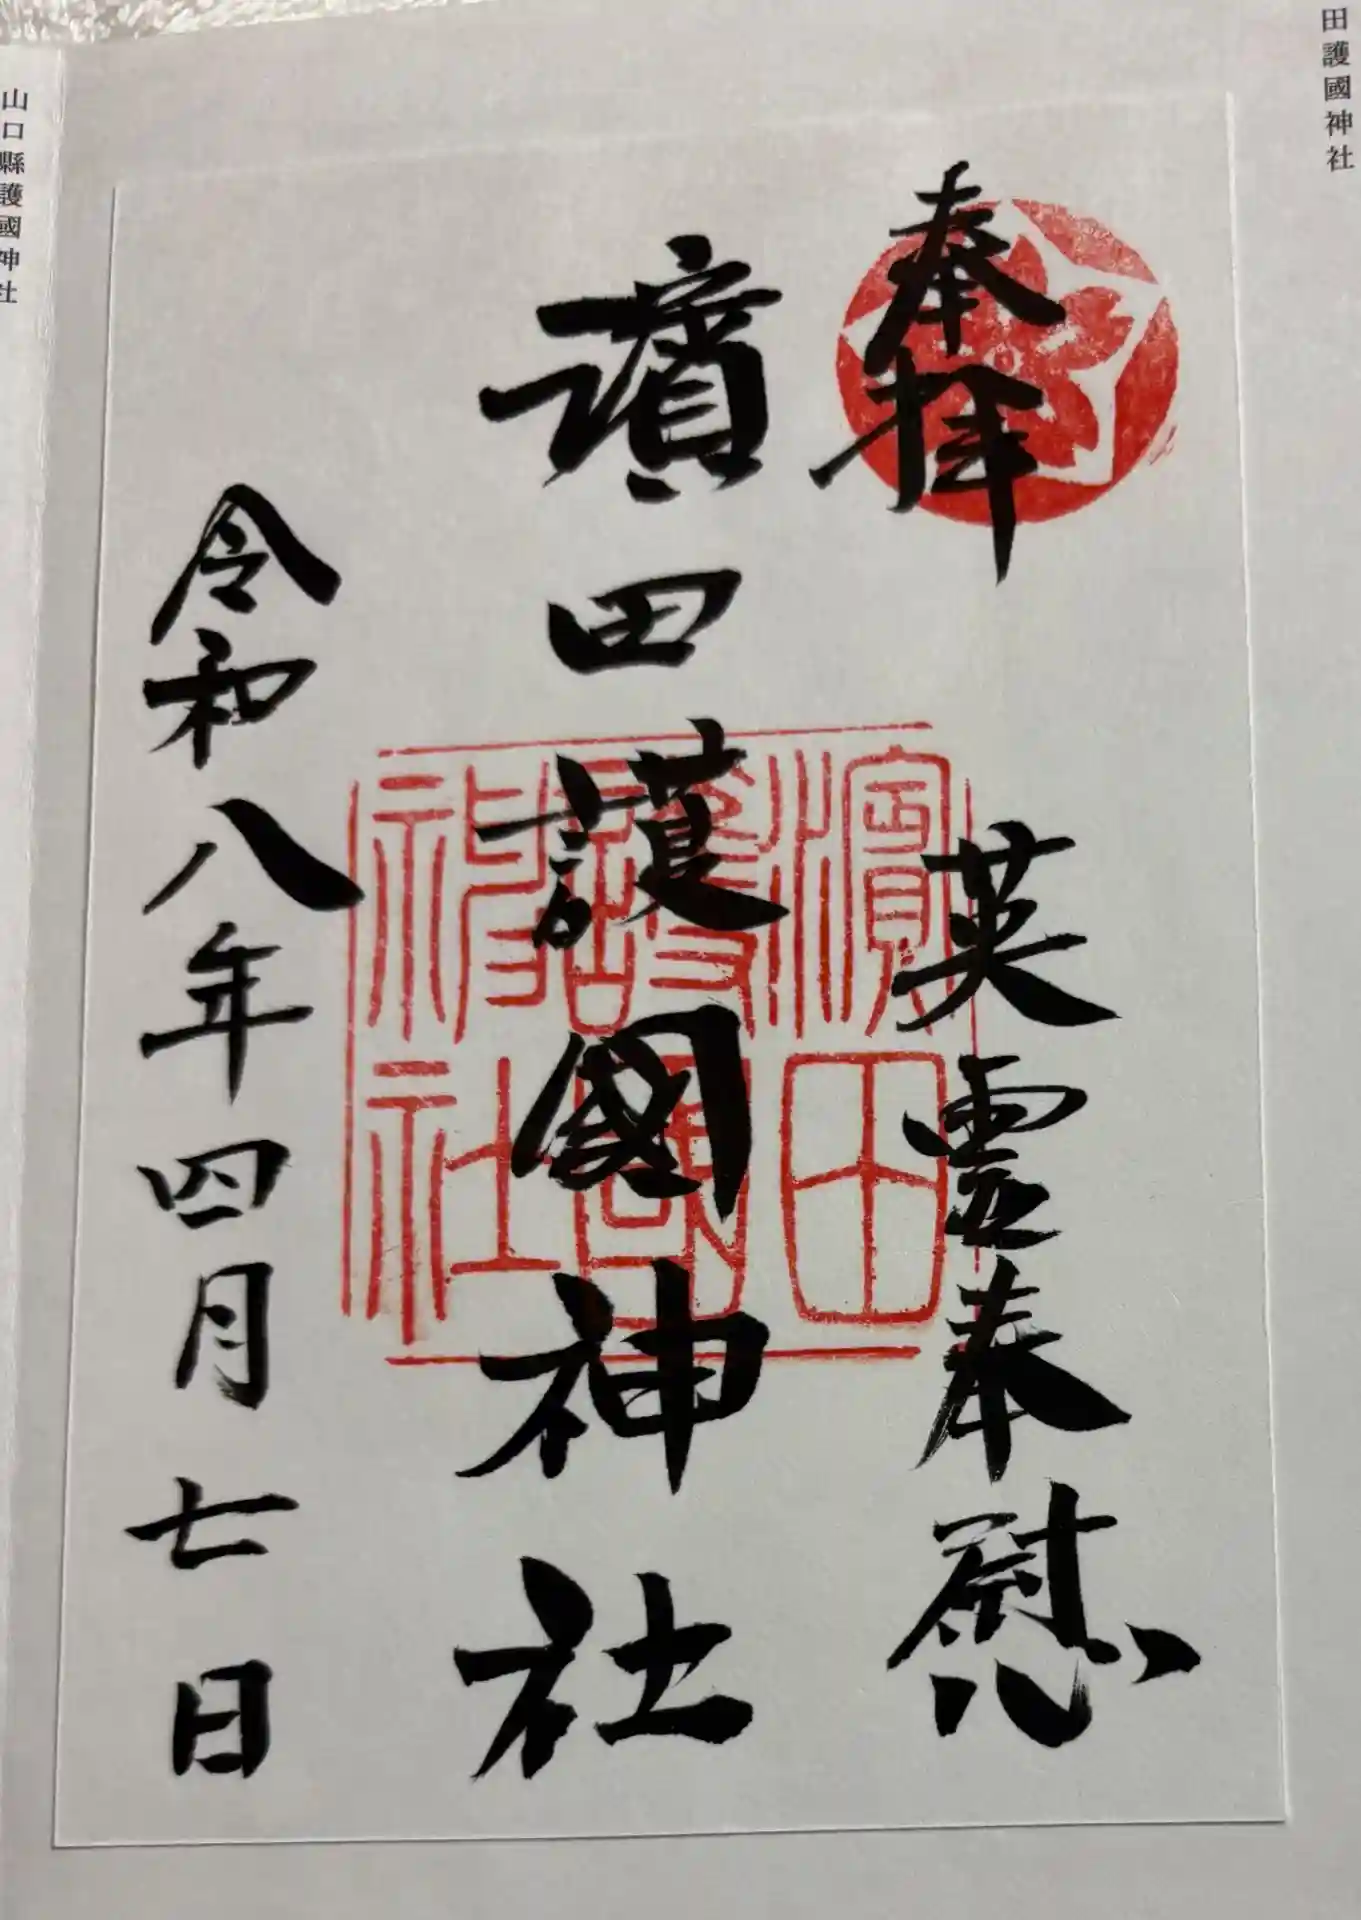 田護國神社
奉拝
英霊奉慰
濱田護國神社
濱田
護國
神社
令和八年四月七日
山口縣護國神社